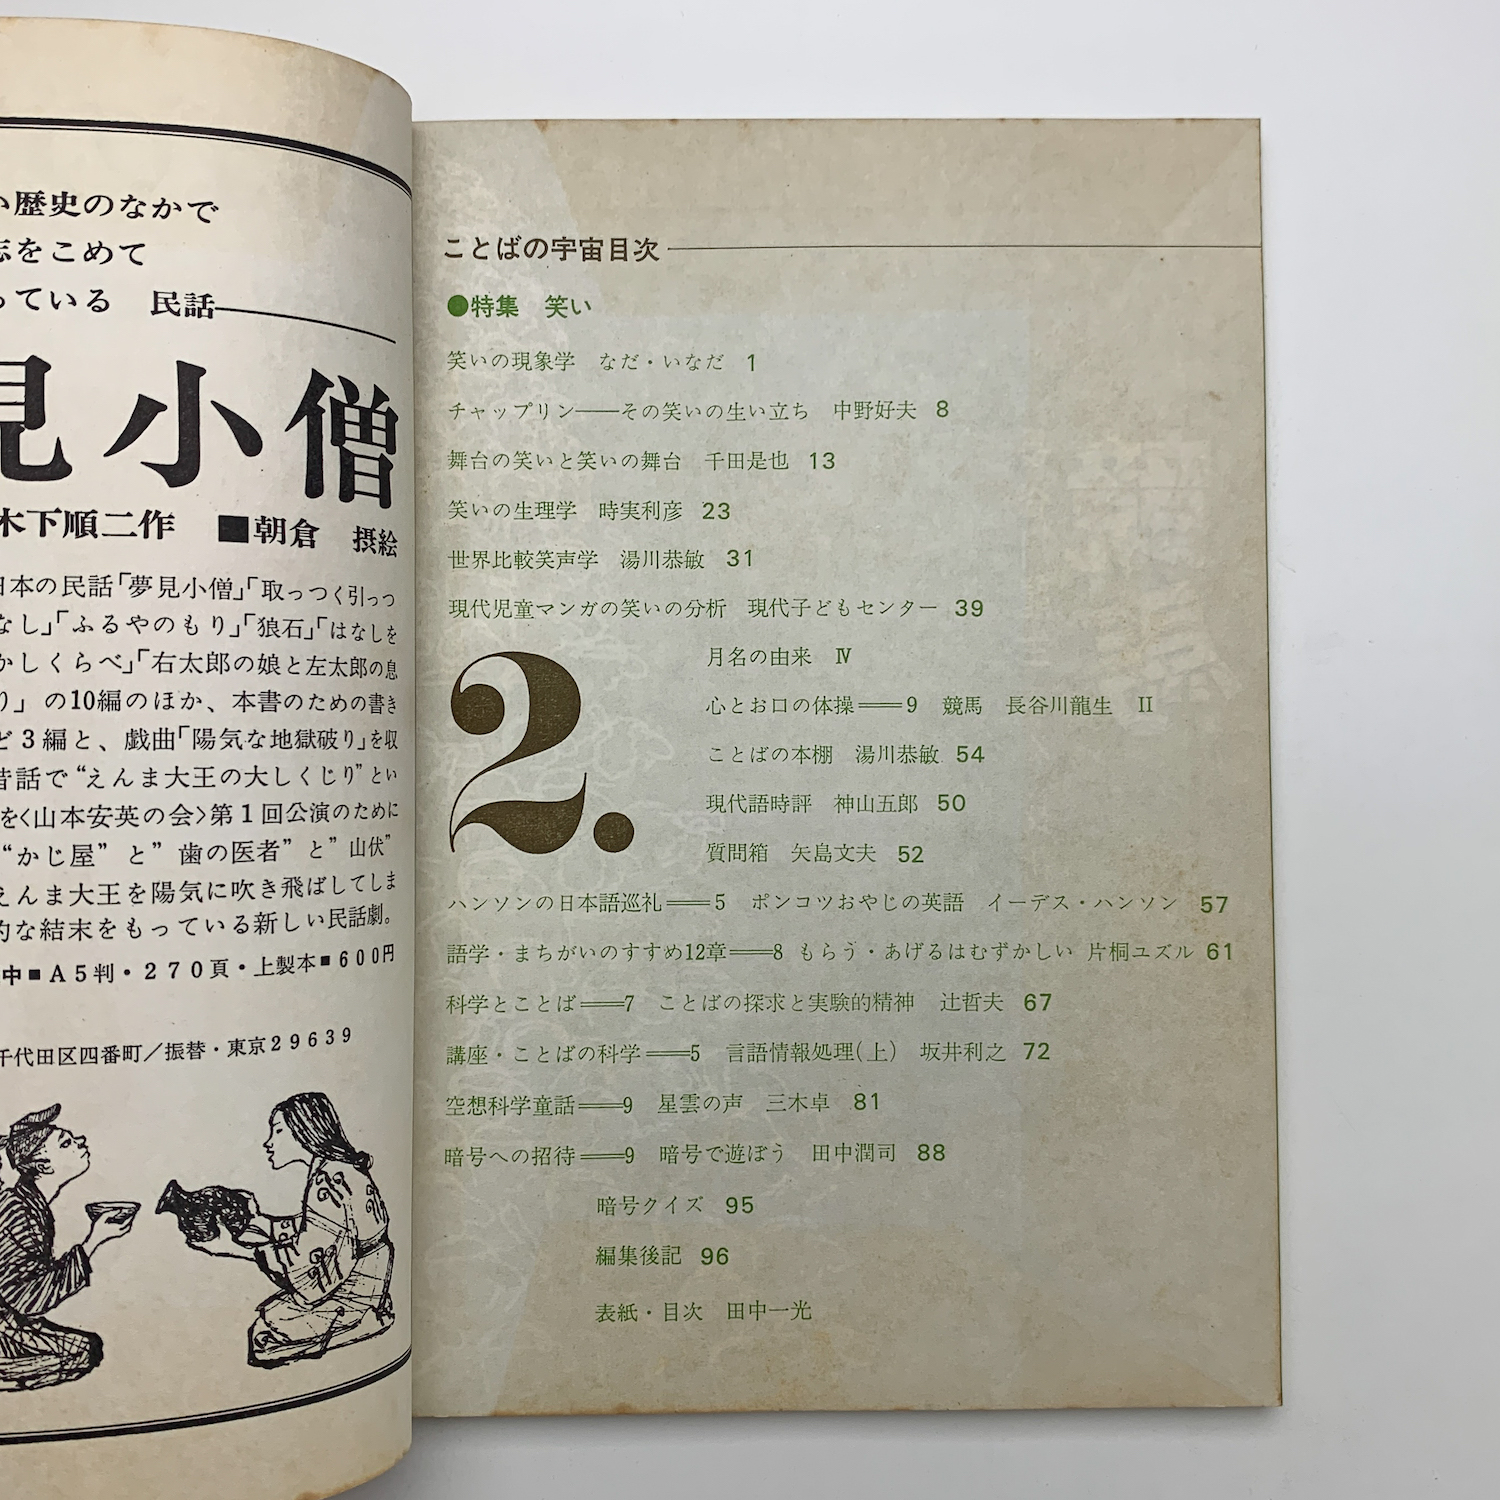 歴史のなかで
志をこめて
っている 民話
見小僧
木下順二作 ■朝倉 摂絵
日本の民話「夢見小僧」「取っつく引っつ
なし」「ふるやのもり」「狼石」「はなしを
かしくらべ」「右太郎の娘と左太郎の息
り」の10編のほか、本書のための書き
ど3編と、戯曲「陽気な地獄破り」を収
昔話で“えんま大王の大しくじり”とい
を〈山本安英の会〉第1回公演のために
“かじ屋”と”歯の医者”と”山伏”
えんま大王を陽気に吹き飛ばしてしま
的な結末をもっている新しい民話劇。
中■A5判・270頁・上製本■600円
千代田区四番町／振替・東京29639
ことばの宇宙目次
●特集 笑い
笑いの現象学 なだ・いなだ 1
チャップリン――その笑いの生い立ち 中野好夫 8
舞台の笑いと笑いの舞台 千田是也 13
笑いの生理学 時実利彦 23
世界比較笑声学 湯川恭敏 31
現代児童マンガの笑いの分析 現代子どもセンター 39
2.
月名の由来 Ⅳ
心とお口の体操＝＝9 競馬 長谷川龍生 Ⅱ
ことばの本棚 湯川恭敏 54
現代語時評 神山五郎 50
質問箱 矢島文夫 52
ハンソンの日本語巡礼＝＝5 ポンコツおやじの英語 イーデス・ハンソン 57
語学・まちがいのすすめ12章＝＝8 もらう・あげるはむずかしい 片桐ユズル 61
科学とことば＝＝7 ことばの探求と実験的精神 辻哲夫 67
講座・ことばの科学＝＝5 言語情報処理(上) 坂井利之 72
空想科学童話＝＝9 星雲の声 三木卓 81
暗号への招待＝＝9 暗号で遊ぼう 田中潤司 88
暗号クイズ 95
編集後記 96
表紙・目次 田中一光